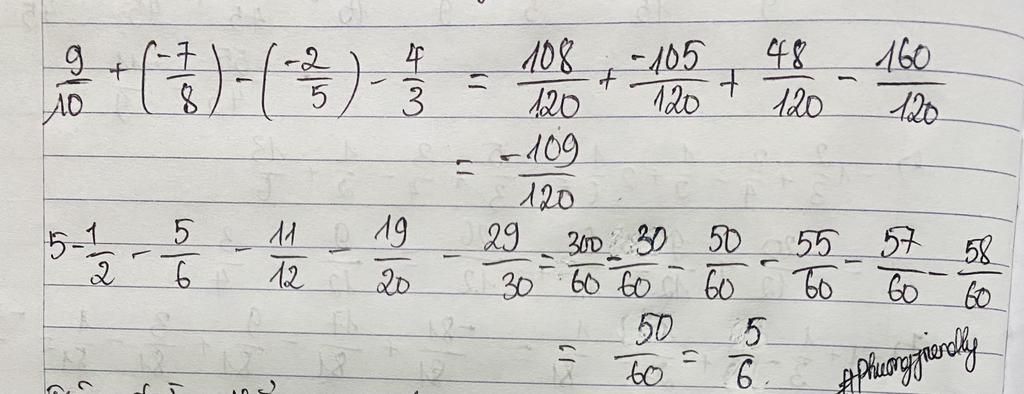 9/10 + (-7/8) - (-2/5) - 4/3 = 108/120 + -105/120 + 48/120 - 160/120
= -109/120
5 - 1/2 - 5/6 - 11/12 - 19/20 - 29/30 = 300/60 - 30/60 - 50/60 - 55/60 - 57/60 - 58/60
= 50/60 = 5/6
#phuongfriendly